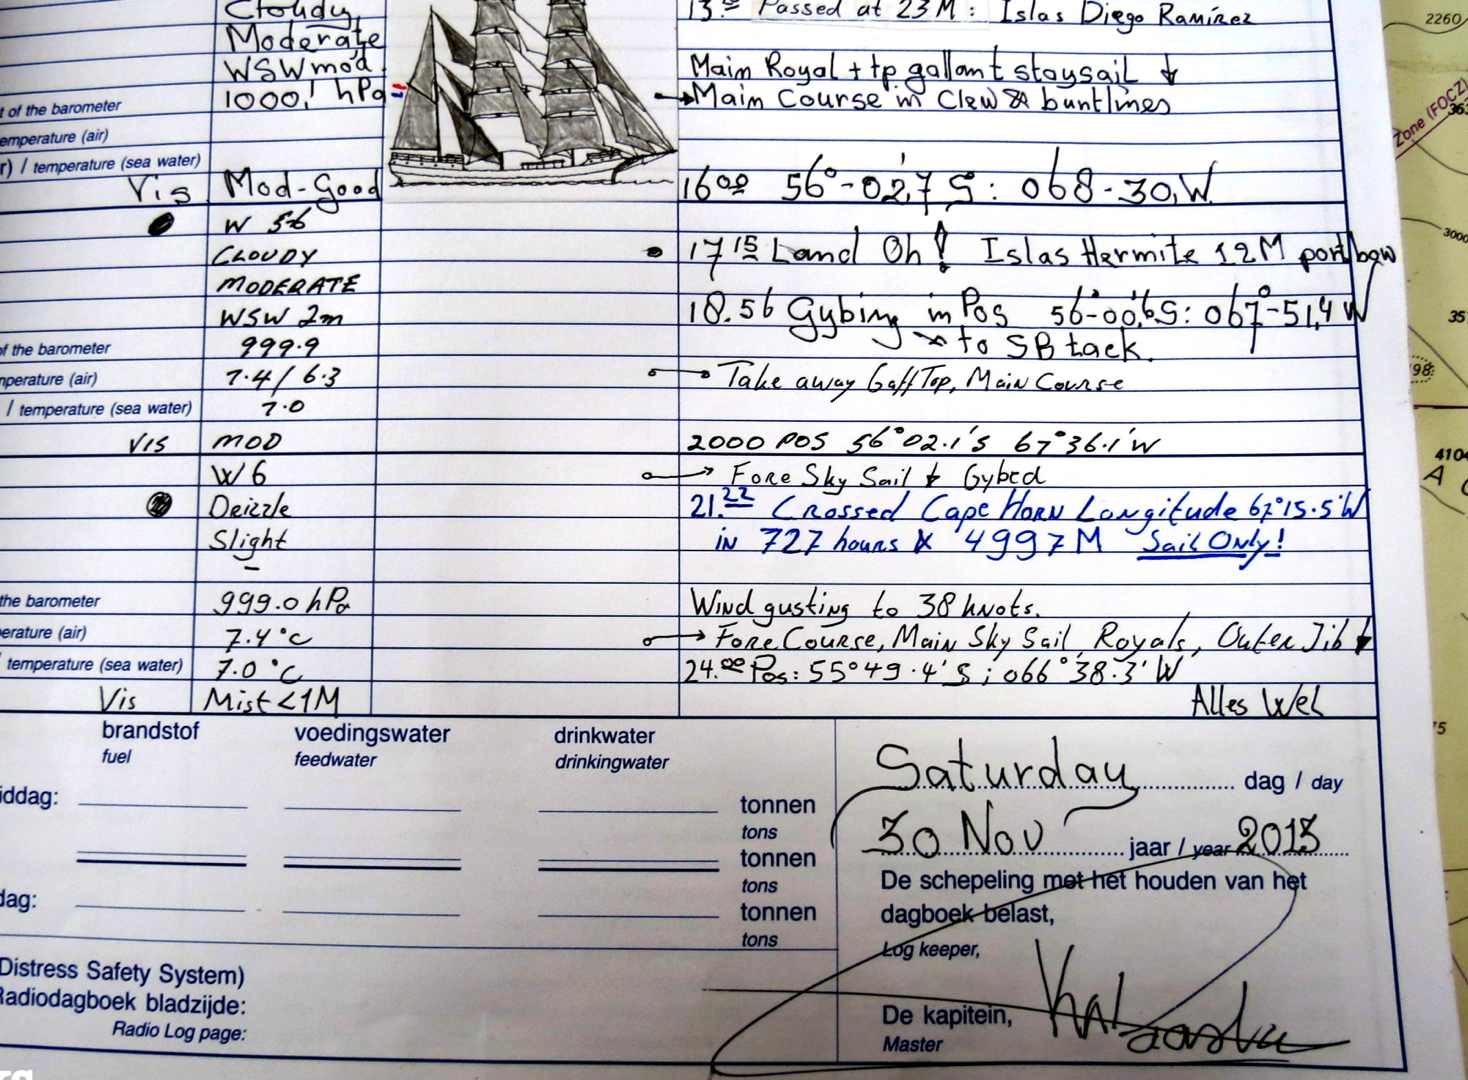 Cloudy
13.== Passed at 23 M : Islas Diego Ramírez
Moderate
WSW mod.
Main Royal + tp gallant staysail ↓
t of the barometer 1000,1 hPa
→ Main Course in Clew & buntlines
emperature (air)
r) / temperature (sea water)
Vis Mod-Good
16⁰⁰ 56°-02,'7 S : 068-30, W.
W 56
CLOUDY
17¹⁵ Land Oh! Islas Hermite 12M port bow
MODERATE
WSW 2m
18.56 Gybing in Pos 56°-00,'6 S : 067°-51,4 W
of the barometer 999.9
to SB tack.
nperature (air) 7.4 / 6.3
→ Take away Gaff Top, Main Course
/ temperature (sea water) 7.0
Vis MOD
2000 POS 56°02.1'S 67°36.1'W
W 6
→ Fore Sky Sail ↓ Gybed
Drizzle
21.²² Crossed Cape Horn Longitude 67°15.5'W
Slight
in 727 hours & 4997M Sail Only!
the barometer 999.0 hPa
Wind gusting to 38 knots.
erature (air) 7.4°C
→ Fore Course, Main Sky Sail, Royals, Outer Jib ↓
temperature (sea water) 7.0 °C
24.⁰⁰ Pos : 55°49.4' S ; 066°38.3' W
Vis Mist <1M
Alles Wel
brandstof voedingswater drinkwater
fuel feedwater drinkingwater
Saturday dag / day
iddag: tonnen
tons
30 Nov jaar / year 2013
tonnen
tons
De schepeling met het houden van het
dagboek belast,
Log keeper,
dag: tonnen
tons
Distress Safety System)
Radiodagboek bladzijde:
Radio Log page:
De kapitein,
Master
2260
Zone (FOCZ)
363
3000
35
98
4104
A